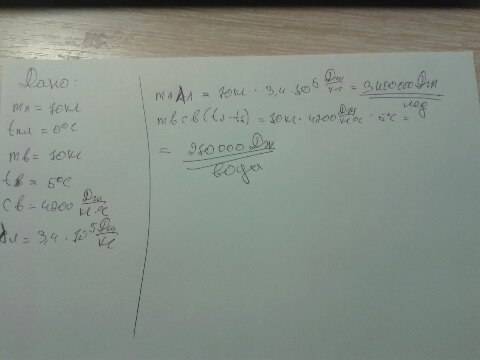 Дано:
mл = 10кг
tпл = 0°C
mв = 10кг
tв = 5°C
Cв = 4200 Дж/кг·°C
λл = 3,4 · 10⁵ Дж/кг
mл λл = 10кг · 3,4 · 10⁵ Дж/кг = 3400000 Дж
лёд
mв cв (t₂-t₁) = 10кг · 4200 Дж/кг·°C · 5°C =
= 210000 Дж
вода